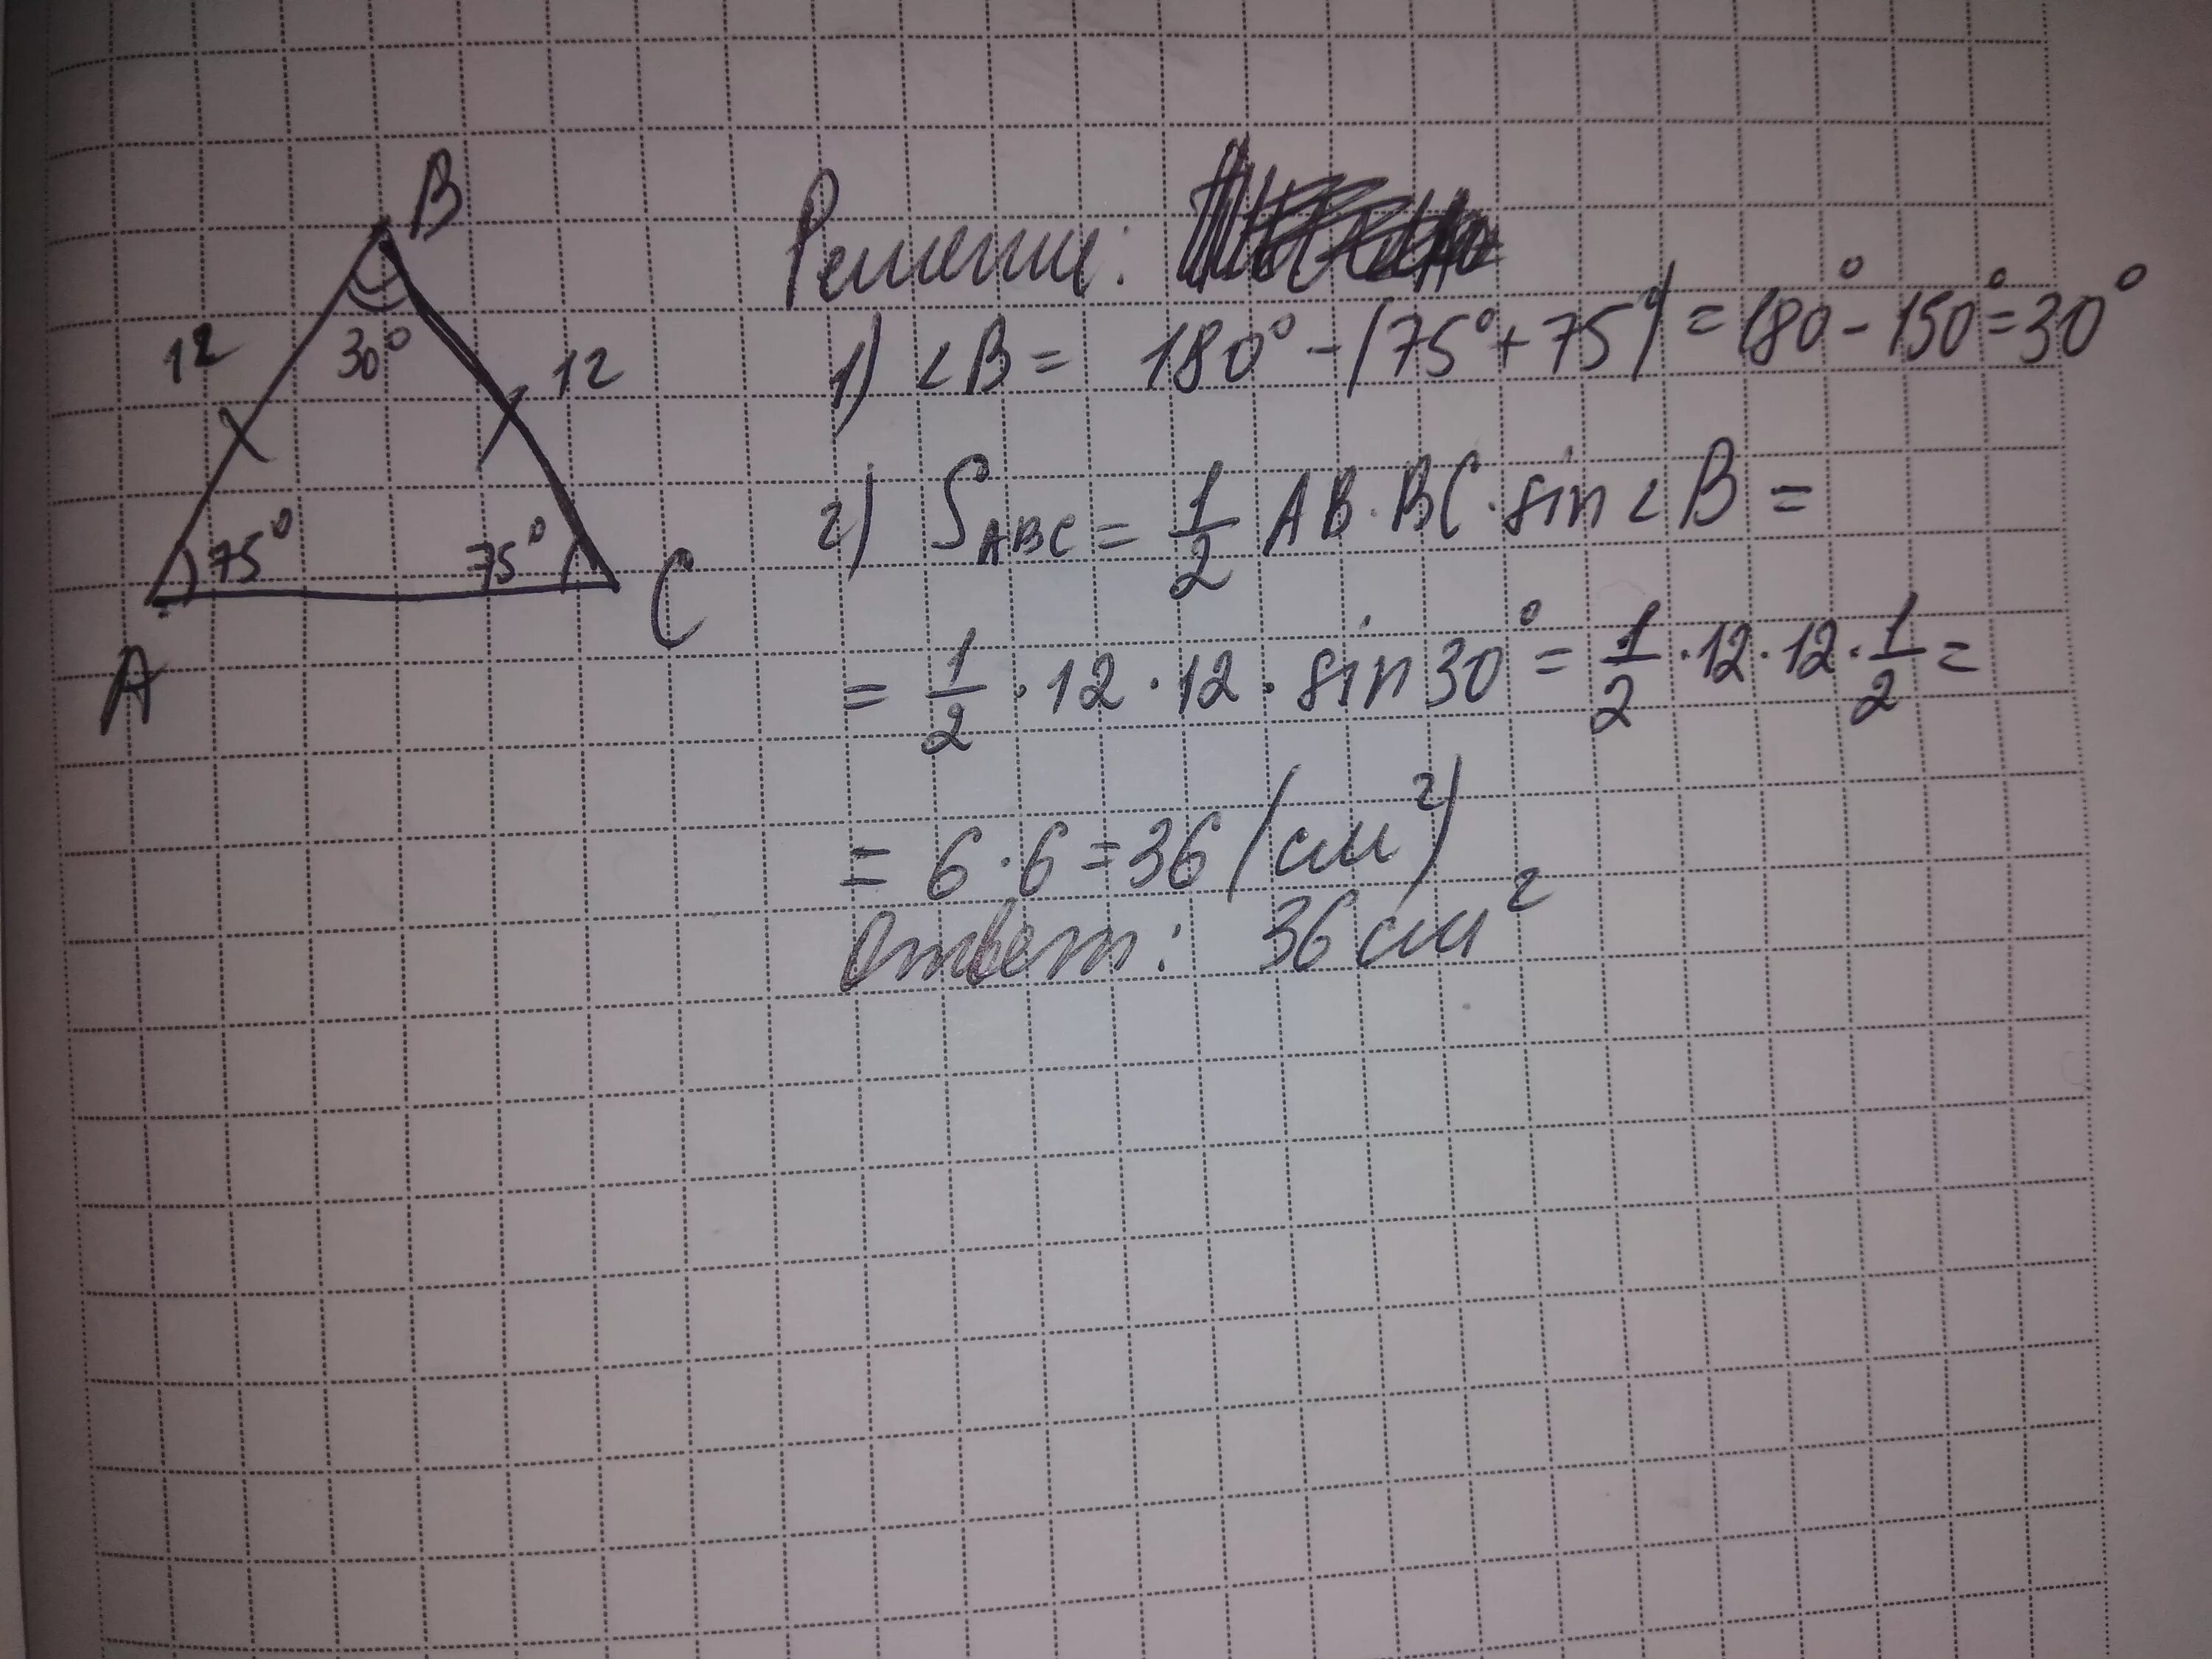 B
12
30°
12
75°
75°
A
C
Решение:
1) ∠B = 180° - (75° + 75°) = 180° - 150° = 30°
2) S_ABC = 1/2 AB · BC · sin ∠B =
= 1/2 · 12 · 12 · sin 30° = 1/2 · 12 · 12 · 1/2 =
= 6 · 6 = 36 (см²)
Ответ: 36 см²